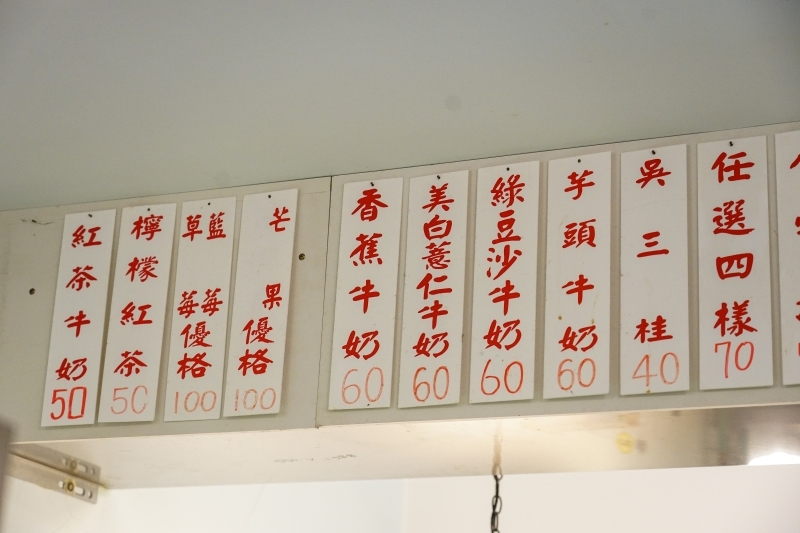 紅茶牛奶
50
檸檬紅茶
50
草莓
藍莓
優格
100
芒果優格
100
香蕉牛奶
60
美白薏仁牛奶
60
綠豆沙牛奶
60
芋頭牛奶
60
吳三桂
40
任選四樣
70